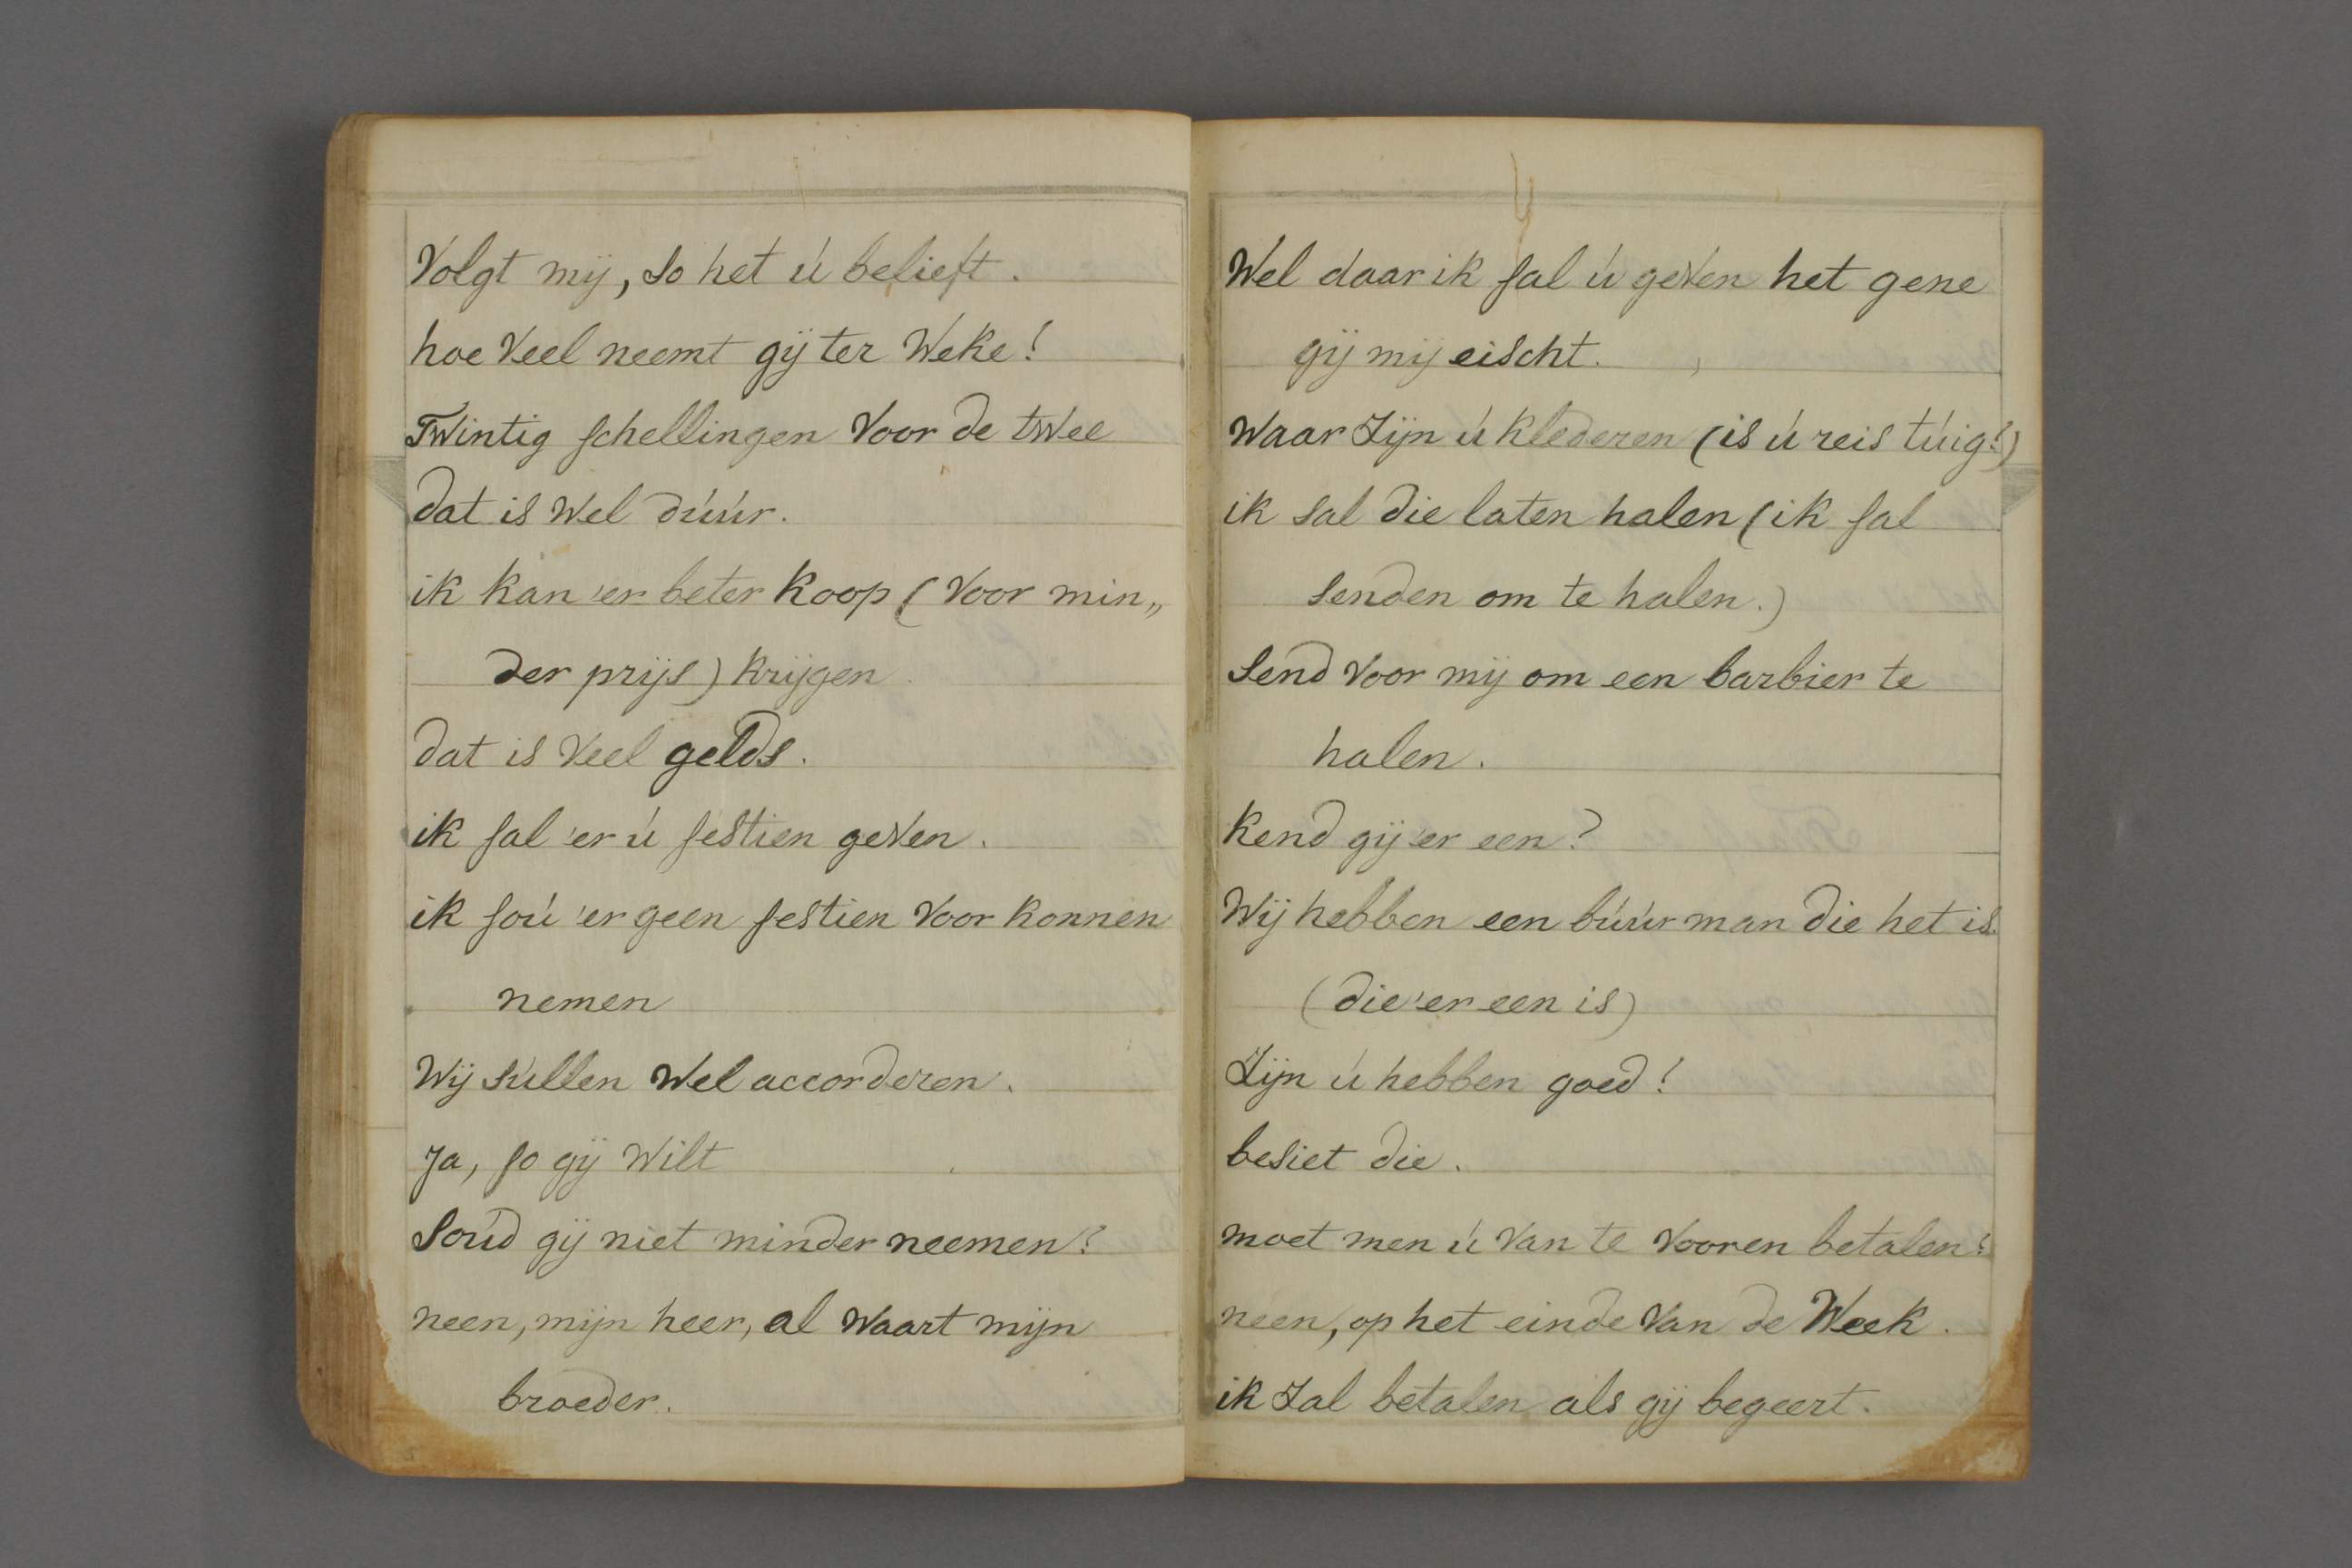 Volgt mij, so het ú belieft.
hoe Veel neemt gij ter Weke!
Twintig schellingen Voor de twee
dat is Wel dúúr.
ik kan 'er beter koop (Voor min„
der prijs) krijgen.
dat is Veel gelds.
ik sal 'er ú sestien geven.
ik soú 'er geen sestien Voor konnen
nemen
Wij súllen Wel accorderen.
Ja, so gij Wilt
Soúd gij niet minder neemen?
neen, mijn heer, al Waart mijn
broeder.
Wel daar ik sal ú geven het gene
gij mij eischt.
Waar Zijn ú klederen (is ú reis túig?)
ik sal die laten halen (ik sal
senden om te halen.)
Send Voor mij om een barbier te
halen.
kend gij 'er een?
Wij hebben een búúrman die het is.
(die 'er een is)
Zijn ú hebben goed!
besiet die.
moet men ú Van te Vooren betalen?
neen, op het einde Van de Week.
ik Zal betalen als gij begeert.